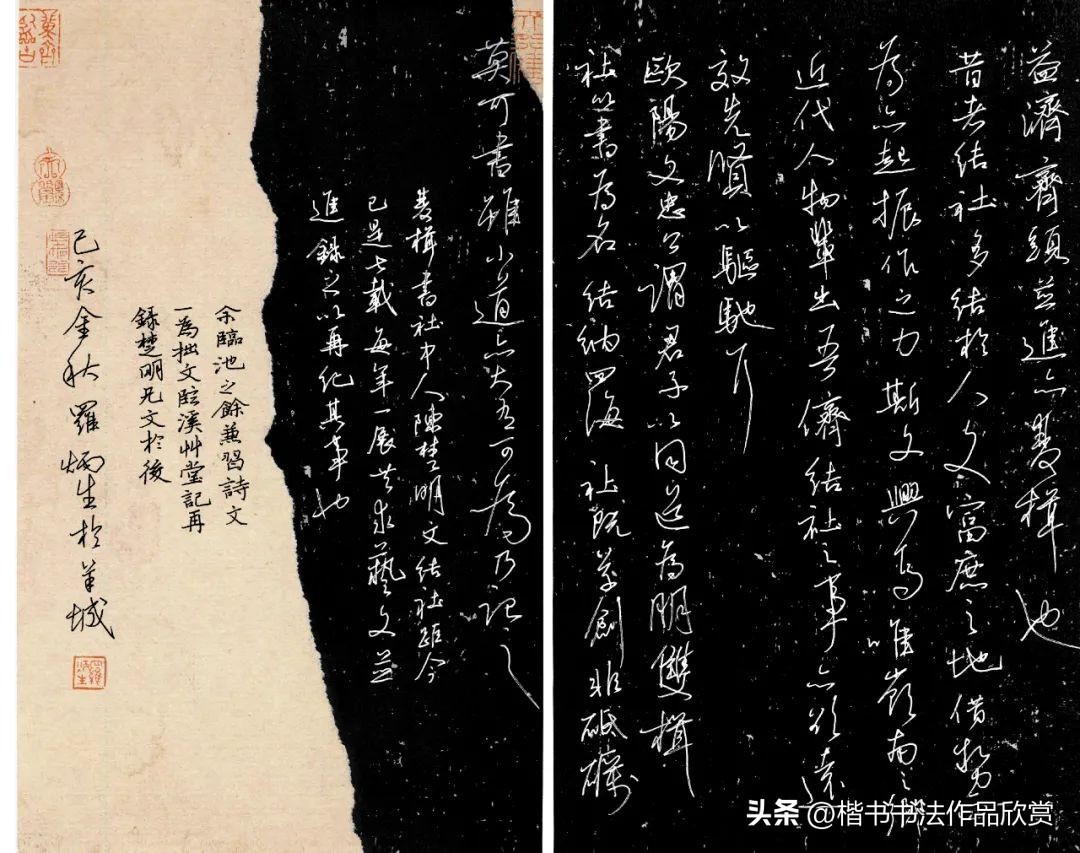 益濟齊頭並進亦雙楫也
昔者結社多結於人文富庶之地借勢
為亦起振作之力斯文興焉唯嶺南之鄉
近代人物輩出吾儕結社之事亦欲遠
效先賢以驅馳耳
歐陽文忠公謂君子以同道為朋雙楫
社以書為名結納四海社既草創非砥礪
莫可書雖小道亦大有可為乃記之
雙楫書社中人陳楚明文結社距今
已是七載每年一展共求藝文並
進錄之以再紀其事也
余臨池之餘兼習詩文
一為拙文臨溪艸堂記再
錄楚明兄文於後
己亥金秋羅炳生於羊城
头条@楷书书法作品欣赏